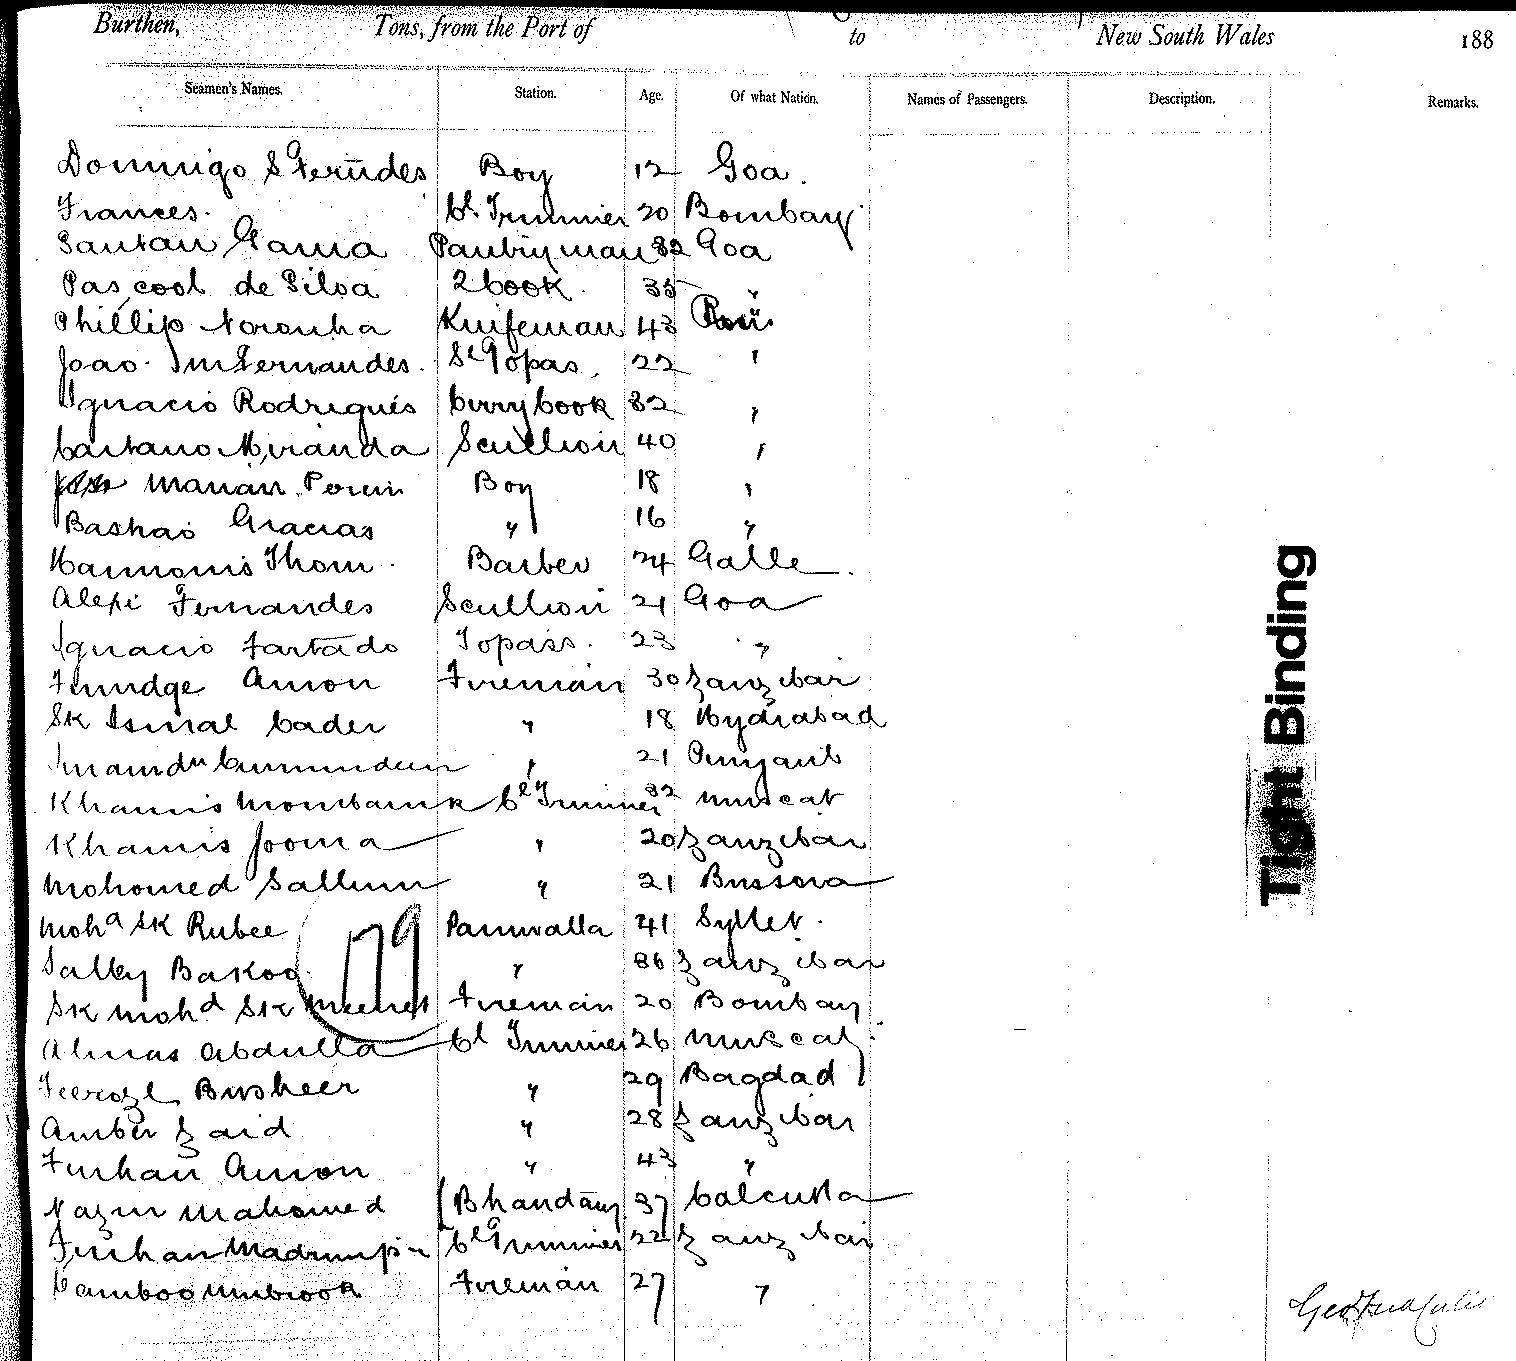 Burthen, Tons, from the Port of to New South Wales 188
Seamen's Names. Station. Age. Of what Nation. Names of Passengers. Description. Remarks.
Domingo S Ferñdes Boy 12 Goa.
Frances. Cl Trimmer 20 Bombay
Santan Gama Pantryman 32 Goa
Pascool de Silva 2 Cook 35 "
Phillip Noronha Knifeman 43 "
Joao Fernandes. Topas. 22 "
Ignacio Rodrigués Currycook 32 "
Caitano Miranda Scullion 40 "
Marian Boy 18 "
Gracias " 16 "
Thom. Barber 24 Galle.
Alexi Fernandes Scullion 21 Goa
Ignacio Fartado Topass. 23 "
Amon Fireman 30 Zanzibar
Sk Ismal Cader " 18 Hydrabad
" 21 Punjaub
Khamis Cl Trimmer 32 Muscat
Khamis Jooma " 20 Zanzibar
Mohomed Sallum " 21 Bussora
Mohd Sk Rubee Paniwalla 41 Syllet.
Salley Bakoo " 36 Zanzibar
Sk Mohd Sk Fireman 20 Bombay
Almas Abdulla Cl Trimmer 26 Muscat
Busheer " 29 Bagdad
Amber Zaid " 28 Zanzibar
Furhan Amon " 43 "
Nazir Mahomed Bhandary 37 Calcutta
Furhan Cl Trimmer 22 Zanzibar
Camboo Fireman 27 "
79
Tight Binding